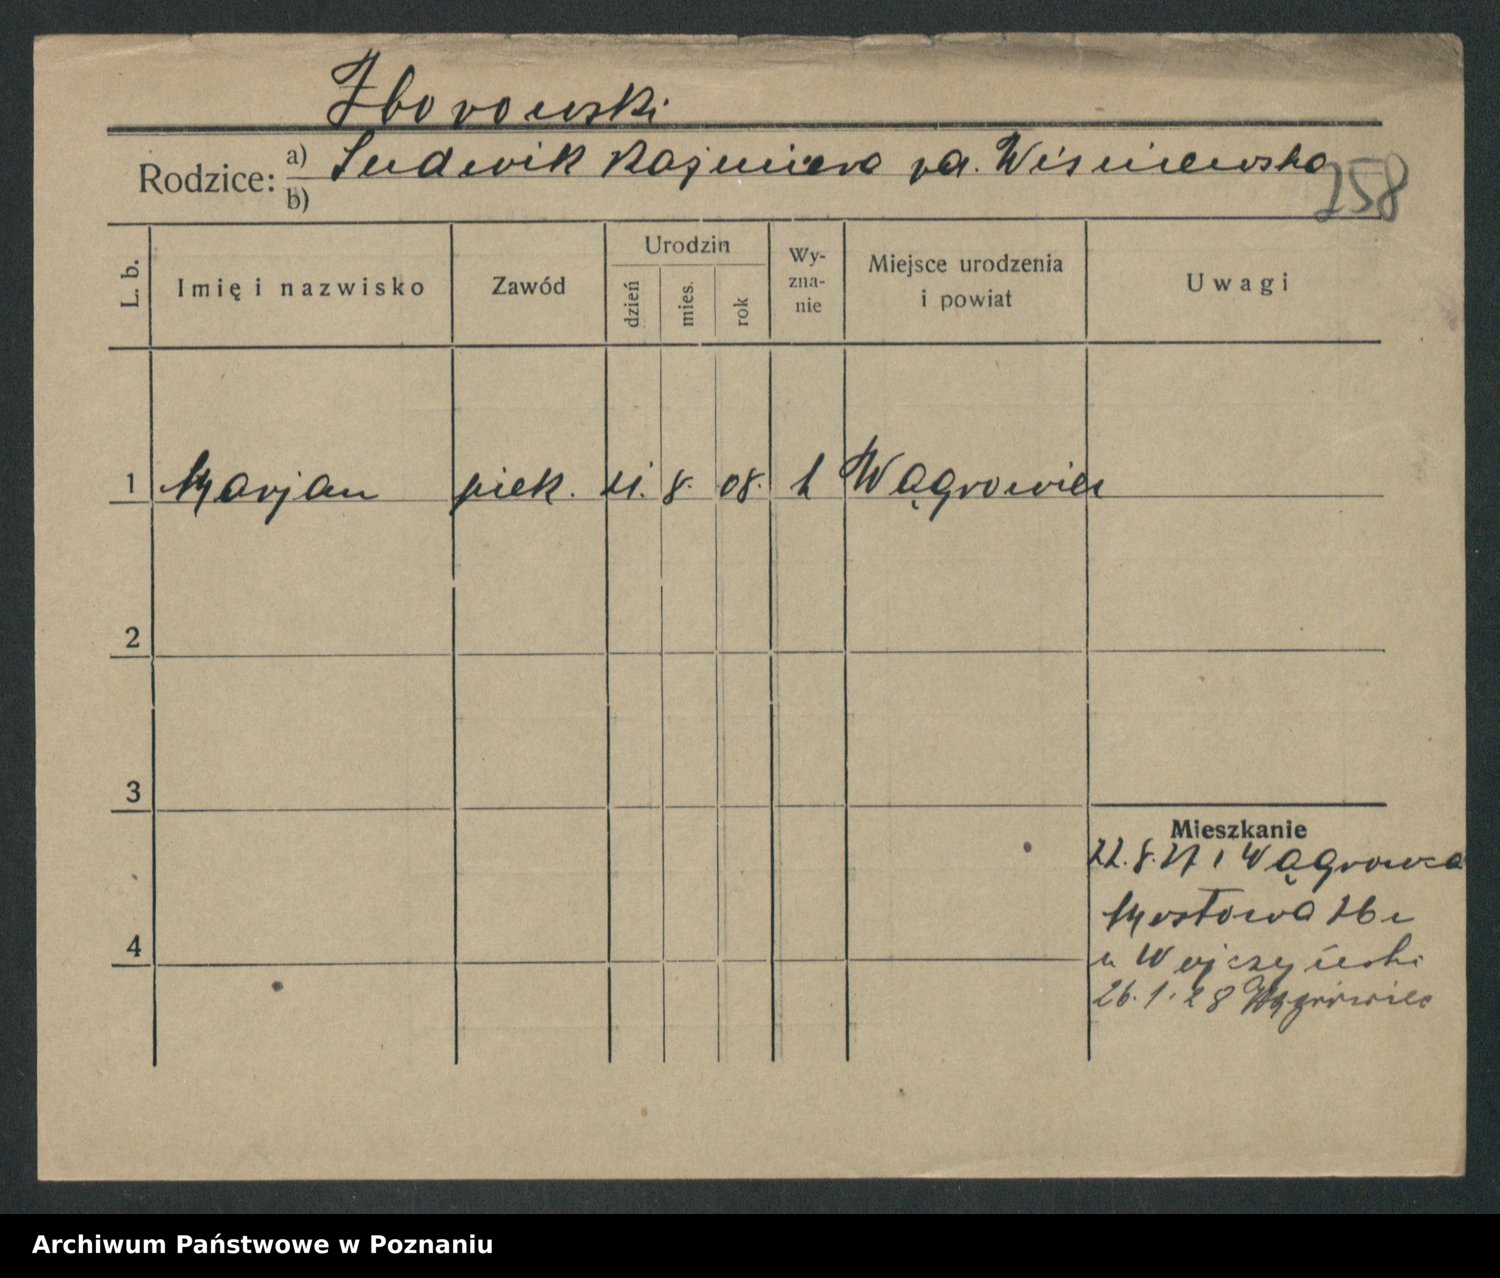 Zborowski
Rodzice: a) Ludwik Kaźmiera rd. Wiśniewska
b)
258
L. b. Imię i nazwisko Zawód Urodzin dzień mies. rok Wyznanie Miejsce urodzenia i powiat Uwagi
1 Marjan piek. 8. 08. Wągrowiec
2
3
Mieszkanie
22.8.27 Wągrowca
Mostowa 26
4
u Wojczyński
26.1.28 Wągrówiec
Archiwum Państwowe w Poznaniu